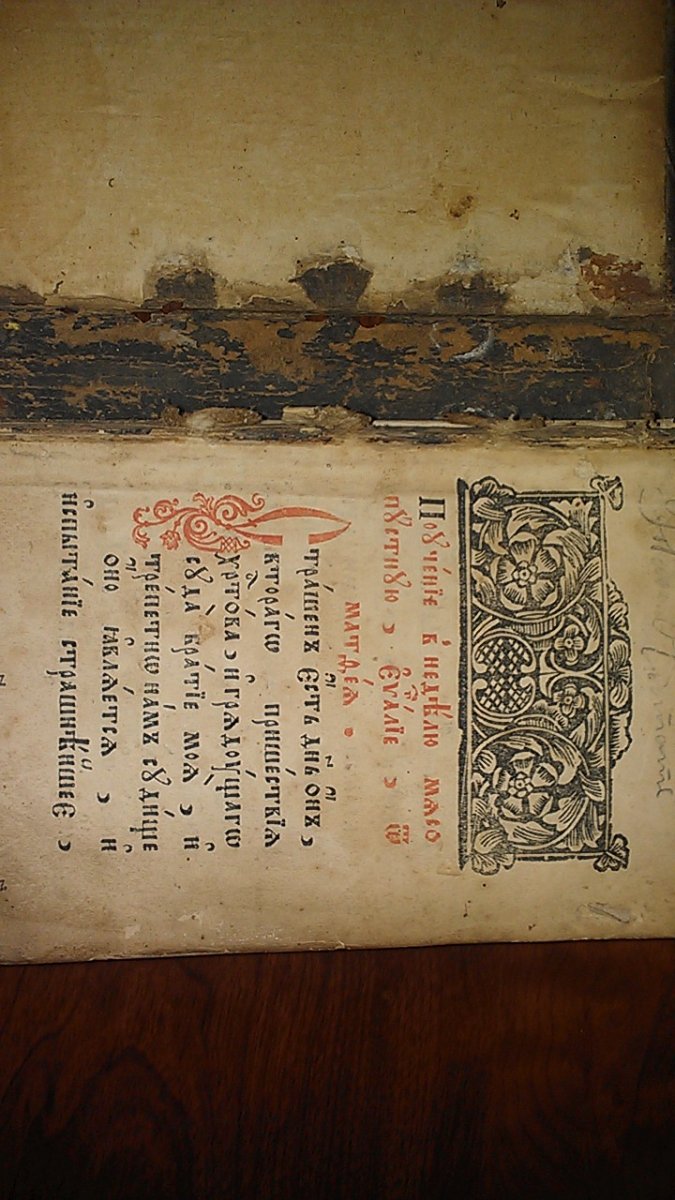 Поꙋче́нїе в̾ недѣ́лю мѧсо
пꙋстнꙋю , Є҆ѵⷢ҇алїе , ѿ
матѳе́ѧ .
Стра́шенъ є҆́сть дн҃ь о҆́нъ ,
вто́рагѡ прише́ствїѧ
хрⷭ҇то́ва , и҆ грѧдꙋ́щагѡ
сꙋда̀ бра́тїе моѧ̀ , и҆
тре́петно на́мъ сꙋди́ще
оно̀ ꙗ҆влѧ́етсѧ , и҆
и҆спыта́нїе стра́шнѣйшее ,